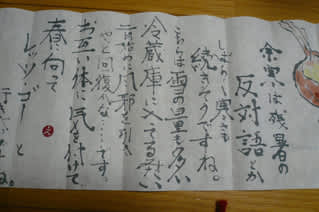 余寒は残暑の
反対語とか
しばらく寒さも
続きそうですね。
こちらは雪の量も多い
冷蔵庫に入ってる努い
風邪を引き
やっと回復かな……です。
お互い体に気を付けて
春に向って
レッツゴーと